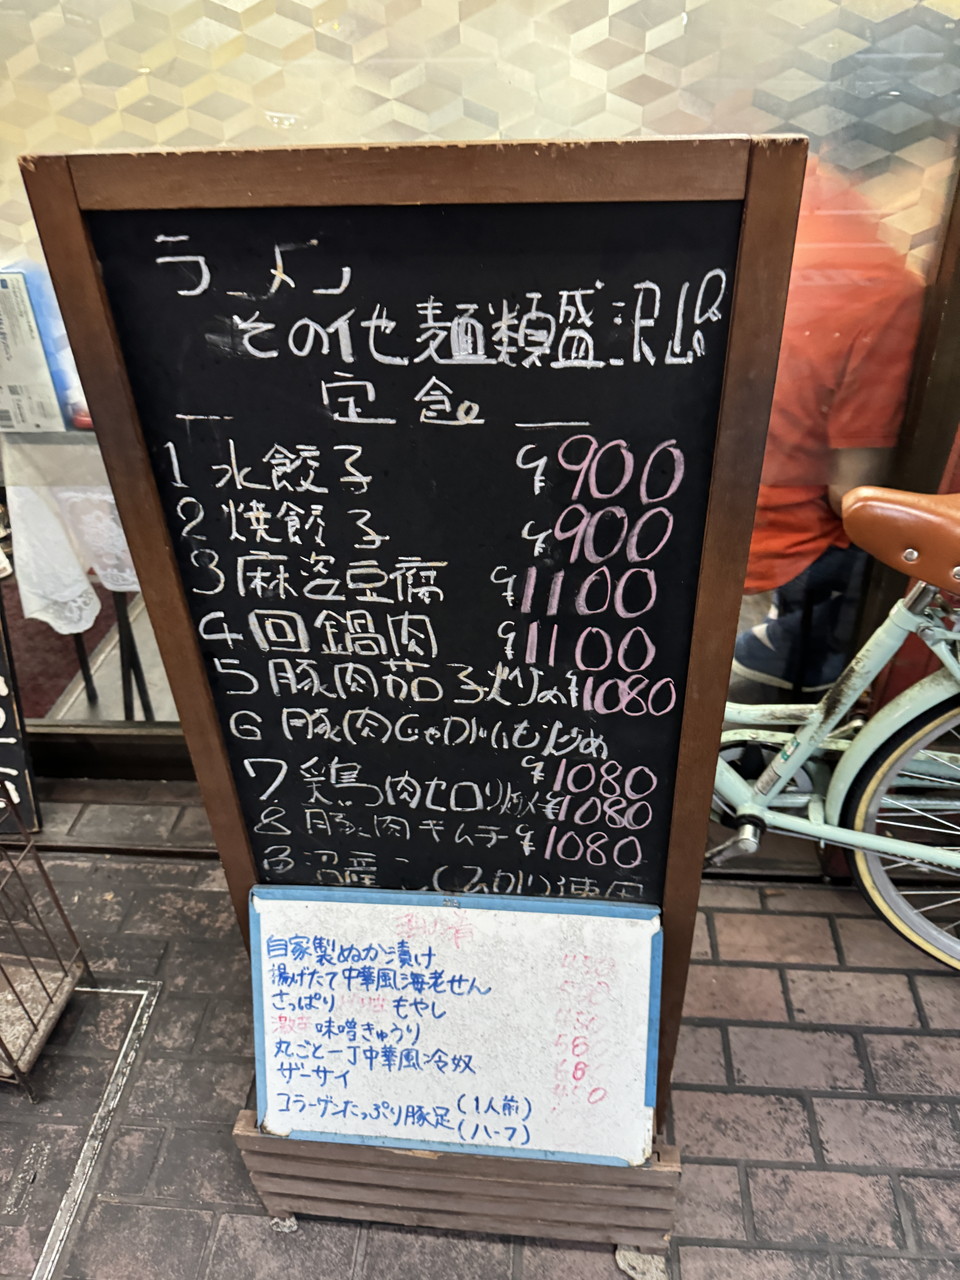 ラーメン
その他麺類盛沢山
定食
1 水餃子 ¥900
2 焼餃子 ¥900
3 麻婆豆腐 ¥1100
4 回鍋肉 ¥1100
5 豚肉茄子炒め ¥1080
6 豚肉じゃがいも炒め
¥1080
7 鶏肉セロリ炒め ¥1080
8 豚肉キムチ ¥1080
自家製ぬか漬け
揚げたて中華風海老せん
さっぱり もやし
激辛味噌きゅうり
丸ごと一丁中華風冷奴
ザーサイ
コラーゲンたっぷり豚足(1人前)
(ハーフ)